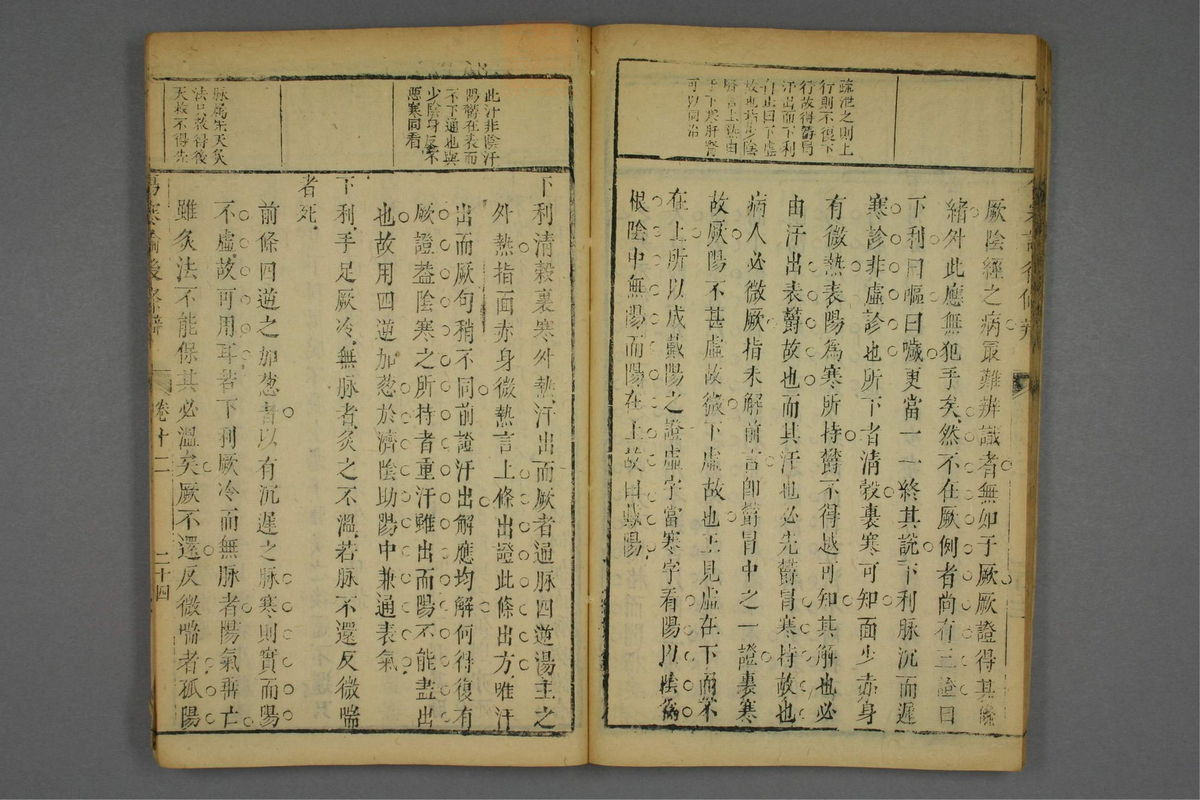 疏泄之則上
行則不復下
行故得鬱冒
汗出而下利
自止曰下虛
故也指少陰
腎言上熱由
于下寒肝腎
可以同治
厥陰經之病最難辨識者無如于厥厥證得其條
緒外此應無犯手矣然不在厥例者尚有三證曰
下利曰嘔曰噦更當一一終其說下利脉沉而遲
寒診非虛診也所下者清穀裏寒可知面少赤身
有微熱表陽為寒所持鬱不得越可知其解也必
由汗出表鬱故也而其汗也必先鬱冒寒持故也
病人必微厥指未解前言卽鬱冒中之一證裏寒
故厥陽不甚虛故微下虛故也上見虛在下而不
在上所以成戴陽之證虛字當寒字看陽以陰為
根陰中無陽而陽在上故曰戴陽
此汗非陰汗
陽鬱在表而
不下通也與
少陰身反不
惡寒同看
脉為先天灸
法只救得後
天救不得先
下利清穀裏寒外熱汗出而厥者通脉四逆湯主之
外熱指面赤身微熱言上條出證此條出方唯汗
出而厥句稍不同前證汗出解應均解何得復有
厥證葢陰寒之所持者重汗雖出而陽不能盡出
也故用四逆加葱於濟陰助陽中兼通表氣
下利手足厥冷無脉者灸之不溫若脉不還反微喘
者死
前條四逆之加葱者以有沉遲之脉寒則實而陽
不虛故可用耳若下利厥冷而無脉者陽氣輒亡
雖灸法不能保其必溫矣厥不還反微喘者孤陽
傷寒論後條辨
卷十二
二十四